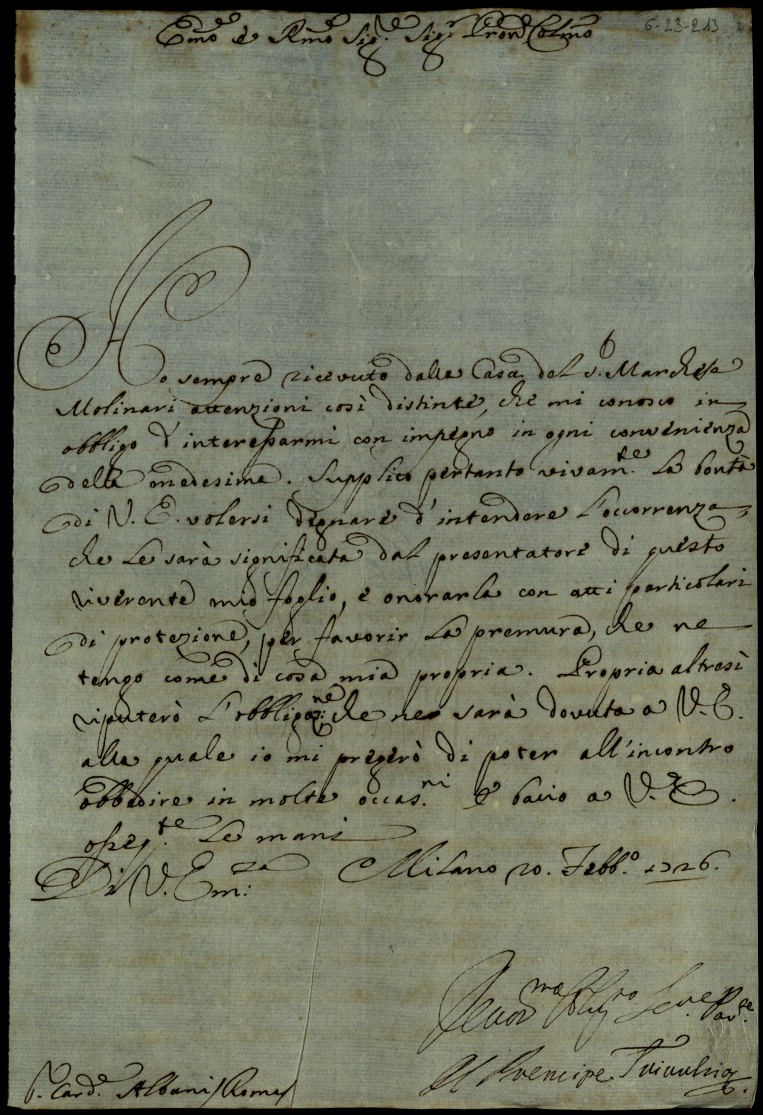 6-23-213
Em.o e Rmo Sig.r Sig.r Pron Colmo
Ho sempre ricevuto dalla Casa del S. Marchese
Molinari attenzioni così distinte, che mi conosco in
obbligo d'interessarmi con impegno in ogni convenienza
della medesima. Supplico pertanto vivam.te la bontà
di V. E. volersi degnare d'intendere l'occorrenza,
che le sarà significata dal presentatore di questo
riverente mio foglio, e onorarla con atti particolari
di protezione, per favorir la premura, che ne
tengo come di cosa mia propria. Propria altresì
riputerò l'obbligaz.ne che ne sarà dovuta a V. E.
alla quale io mi pregerò di poter all'incontro
obbedire in molte occas.ni E bacio a V. E.
osseq.te le mani
Di V. Em.za Milano 20. Febb.o 1726.
Il Prencipe Trivulzio
S. Card. Albani / Roma /